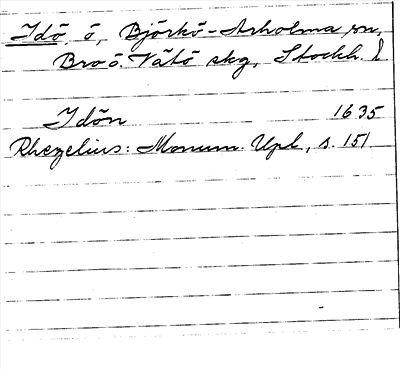 Idö, ö, Björkö-Arholma sn,
Bro o. Vätö skg, Stockh. l
Idön 1635
Rhezelius: Monum. Upl., s. 151